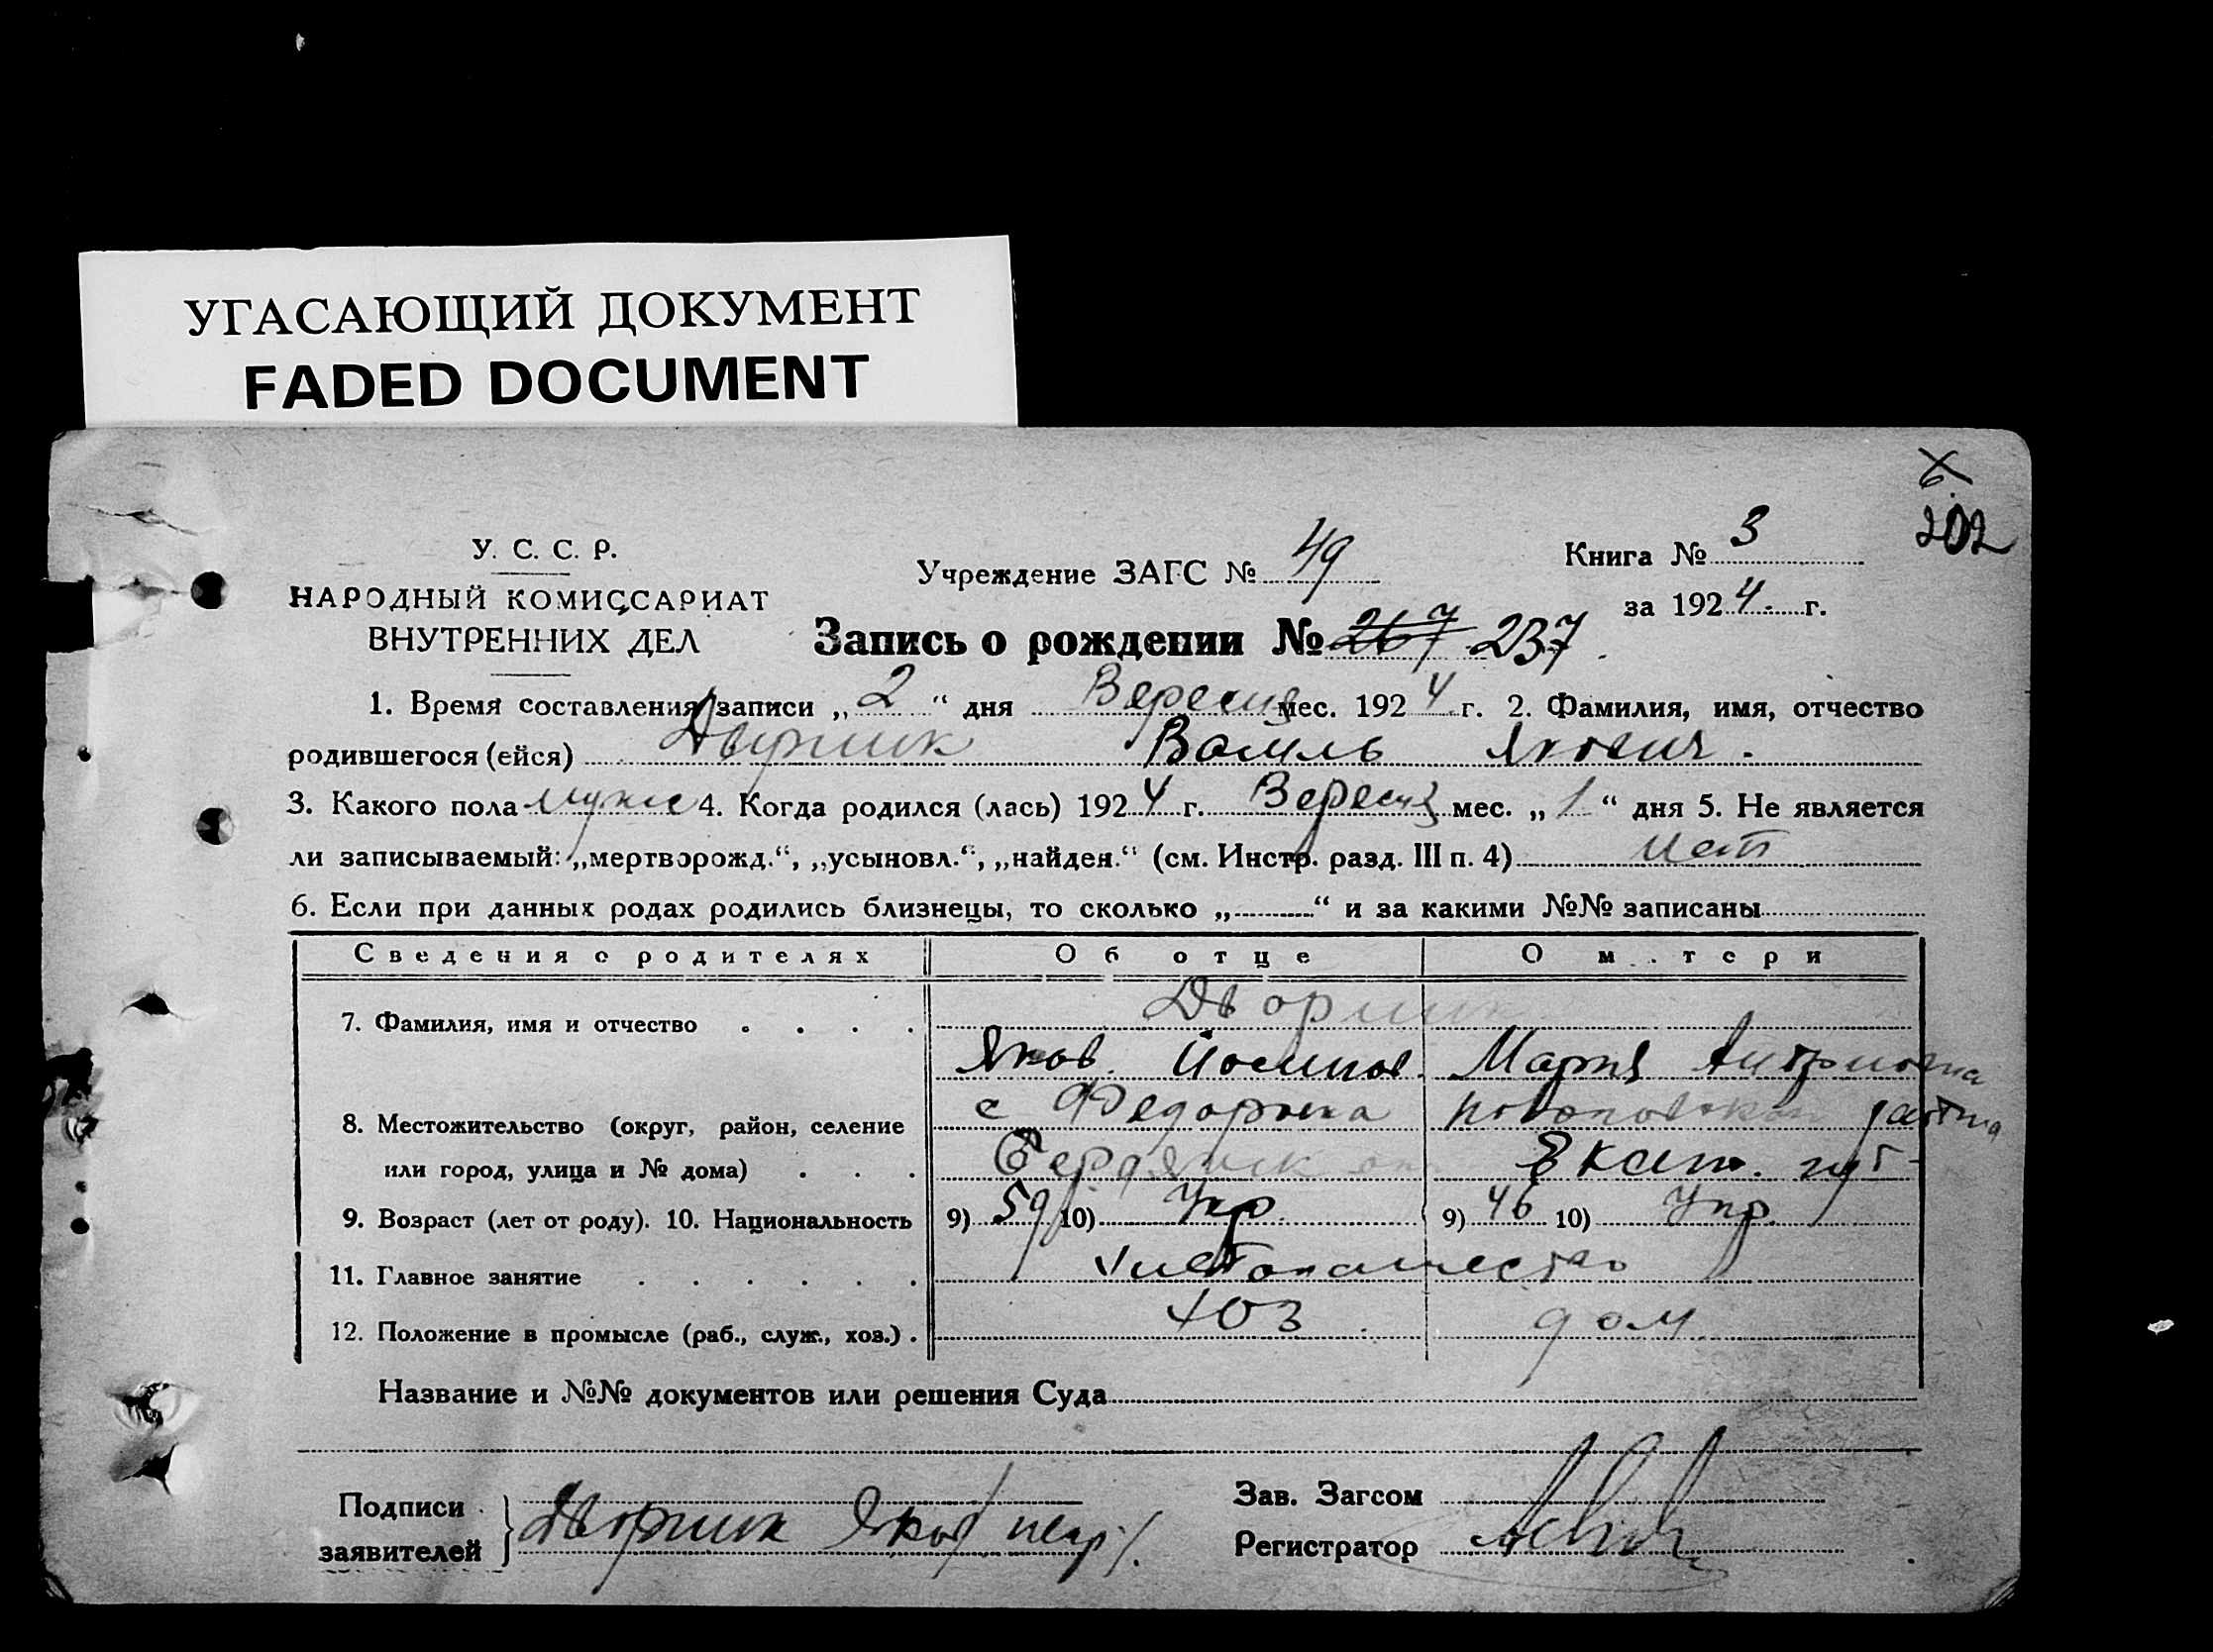 УГАСАЮЩИЙ ДОКУМЕНТ
FADED DOCUMENT
202
У. С. С. Р.
НАРОДНЫЙ КОМИССАРИАТ
ВНУТРЕННИХ ДЕЛ
Учреждение ЗАГС № 49
Книга № 3
за 1924 г.
Запись о рождении № 267 237
1. Время составления записи „2“ дня Вересня мес. 1924 г. 2. Фамилия, имя, отчество
родившегося (ейся) Дворник Василь Якович
3. Какого пола мужс 4. Когда родился (лась) 1924 г. Вересня мес. „1“ дня 5. Не является
ли записываемый: „мертворожд.“, „усыновл.“, „найден.“ (см. Инстр. разд. III п. 4) нет
6. Если при данных родах родились близнецы, то сколько „ “ и за какими №№ записаны
Сведения о родителях Об отце О матери
7. Фамилия, имя и отчество Дворник
Яков Йосипов Мария
8. Местожительство (округ, район, селение с Федоровка
или город, улица и № дома) Бердянск Екат. губ
9. Возраст (лет от роду). 10. Национальность 9) 59 10) Укр 9) 46 10) Укр
11. Главное занятие
12. Положение в промысле (раб., служ., хоз.) хоз дом
Название и №№ документов или решения Суда
Подписи
заявителей Дворник Яков
Зав. Загсом
Регистратор